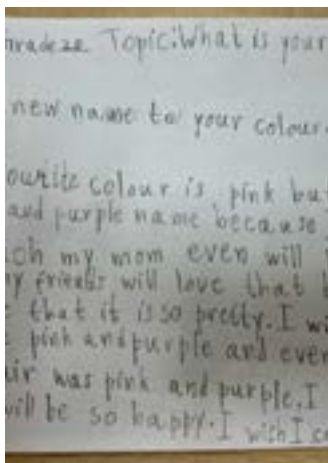 Topic:What is your
new name to your colour.
ourite colour is pink bu
and purple name because
my mom even will
y friends will love that
that it is so pretty.I wi
pink and purple and ever
air was pink and purple.I
will be so happy.I wish I c